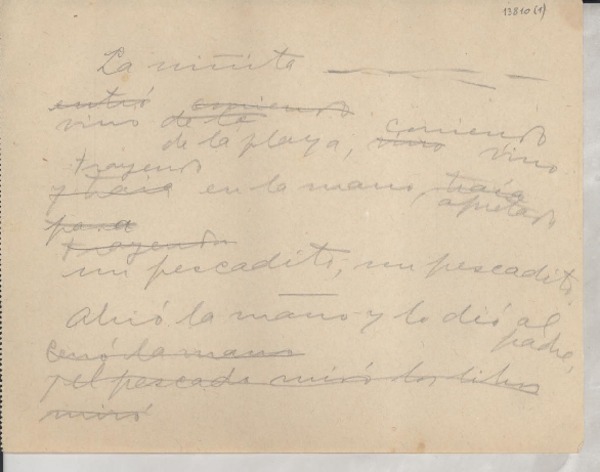 13810(1)
La niñita
entró comiendo
vino de la
de la playa, vino comiendo vino
trayendo
y traía en la mano, traía apretado
para
trayendo
un pescadito, un pescadito.
Abrió la mano y lo dió al padre,
Cerró la mano
y el pescado miró los libros
miró